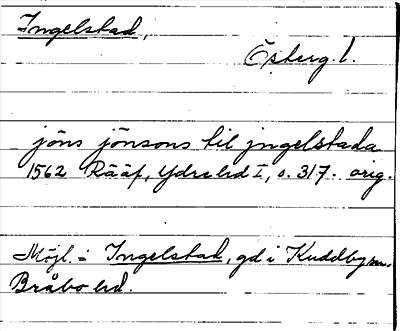 Ingelstad,
Österg. l.
jöns jönsons til jngelstada
1562 Rääf, Ydre hd I, s. 317. orig.
Möjl. = Ingelstad, gd i Kuddby sn.
Bråbo hd.